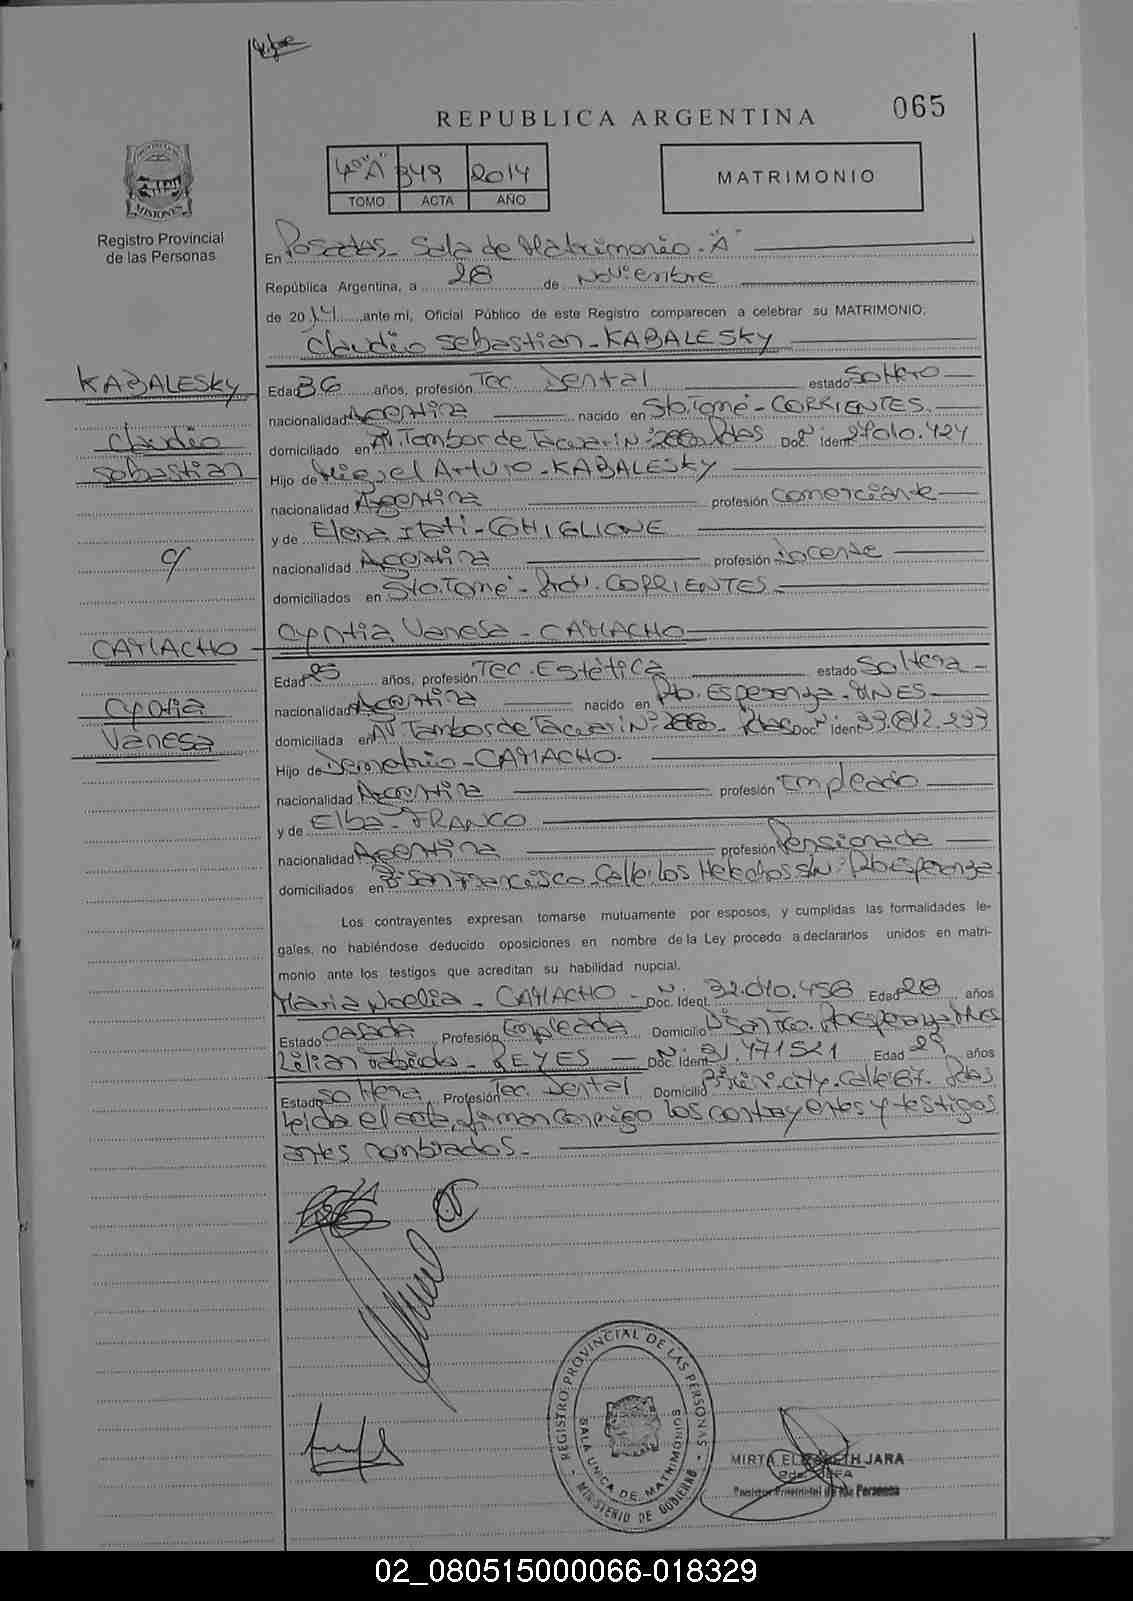 065
REPUBLICA ARGENTINA
4º"A" 349 2014
TOMO ACTA AÑO
MATRIMONIO
MISIONES
Registro Provincial
de las Personas
En Posadas - Sala de Matrimonio - "A"
República Argentina, a 28 de Noviembre
de 2014 ante mí, Oficial Público de este Registro comparecen a celebrar su MATRIMONIO:
Claudio Sebastian - KABALESKY
KABALESKY
Claudio
Sebastian
c/
CAMACHO
Cyntia
Vanesa
Edad 36 años, profesión Tec. Dental estado Soltero
nacionalidad Argentina nacido en Sto. Tomé - CORRIENTES.
domiciliado en Av. Tambor de Tacuari Nº Pdas Doc. Nº Ident. 27.010.424
Hijo de Miguel Arturo - KABALESKY
nacionalidad Argentina profesión Comerciante
y de Elena Itati - GHIGLIONE
nacionalidad Argentina profesión docente
domiciliados en Sto. Tomé - Prov. CORRIENTES
Cyntia Vanesa - CAMACHO
Edad 25 años, profesión Tec. Estética estado Soltera
nacionalidad Argentina nacido en Pto. Esperanza - MNES
domiciliada en Av. Tambor de Tacuari Nº Pdas Doc. Nº Ident. 33.812.933
Hijo de Demetrio - CAMACHO.
nacionalidad Argentina profesión Empleado
y de Elba - FRANCO
nacionalidad Argentina profesión Pensionada
domiciliados en Bº San Francisco - Calle: Los Helechos S/N - Pto Esperanza
Los contrayentes expresan tomarse mutuamente por esposos, y cumplidas las formalidades le-
gales, no habiéndose deducido oposiciones en nombre de la Ley procedo a declararlos unidos en matri-
monio ante los testigos que acreditan su habilidad nupcial.
Maria Noelia - CAMACHO - Doc. Nº Ident. 32.040.458 Edad 28 años
Estado Casada Profesión Empleada Domicilio Bº San Fco. Pto Esperanza Mnes
Lilian Fabiola - REYES - Doc. Nº Ident. 31.471521 Edad 29 años
Estado Soltera Profesión Tec. Dental Domicilio city. Calle 67. Pdas
leida el acta, firman conmigo los contrayentes y testigos
antes nombrados.-
REGISTRO PROVINCIAL DE LAS PERSONAS
SALA UNICA DE MATRIMONIOS
MINISTERIO DE GOBIERNO
MIRTA ELIZABETH JARA
2da. JEFA
Registro Provincial de las Personas
02_080515000066-018329